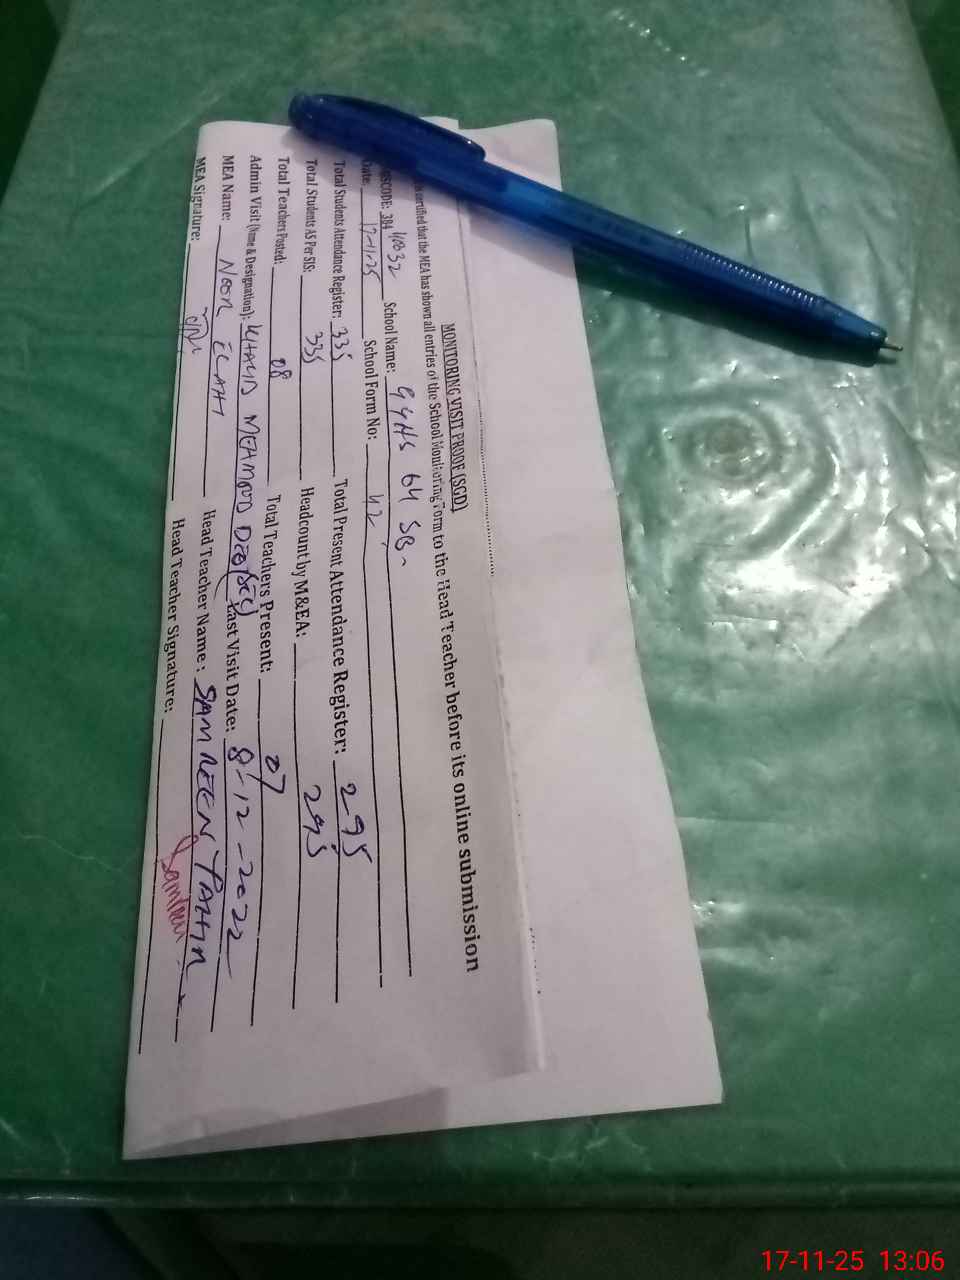 MONITORING VISIT PROOF (SGD)
is certified that the MEA has shown all entries of the School Monitoring Form to the Head Teacher before its online submission
SCODE: 384 40032 School Name: GGHS 64 SB.
Date: 17-11-25 School Form No: 42
Total Students Attendance Register: 335 Total Present Attendance Register: 295
Total Students AS Per SIS: 335 Headcount by M&EA: 295
Total Teachers Posted: 08 Total Teachers Present: 07
Admin Visit (Name & Designation): KHALID MEHMOOD Last Visit Date: 8-12-2022
MEA Name: NOOR ELAHI Head Teacher Name: SAMREEN
MEA Signature: Head Teacher Signature: Samreen
17-11-25 13:06